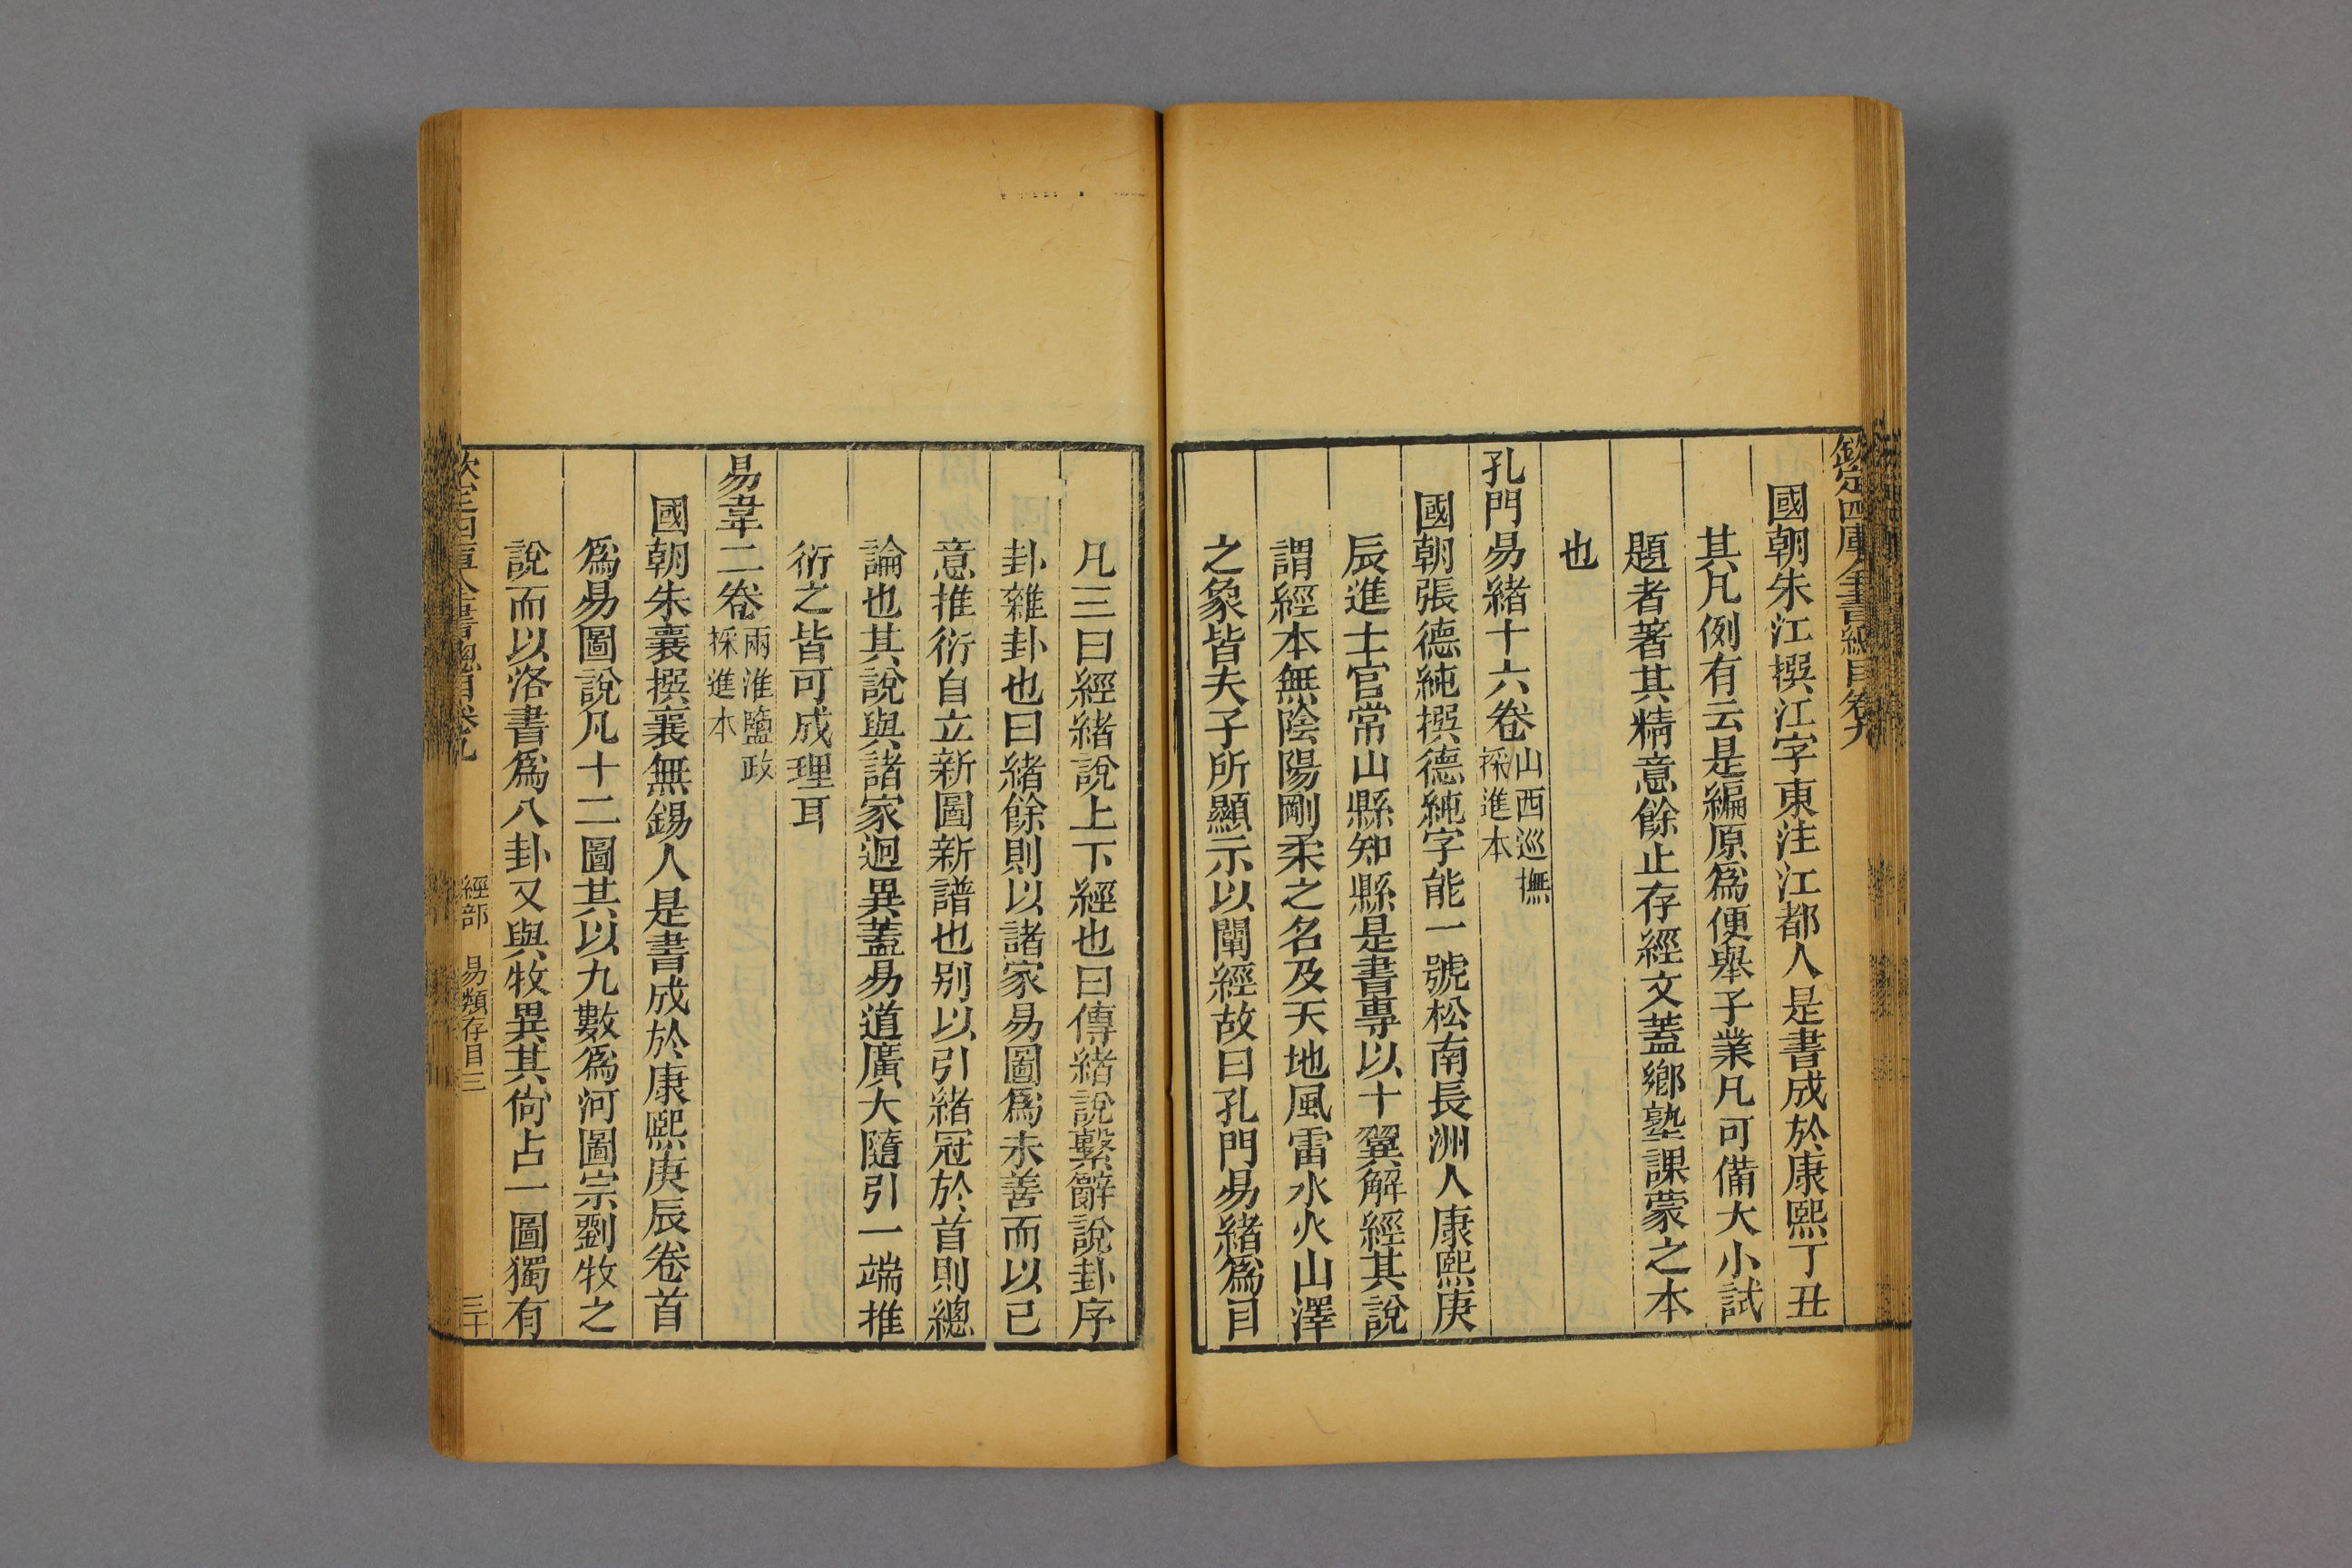 欽定四庫全書總目卷九
國朝朱江撰江字東注江都人是書成於康熙丁丑
其凡例有云是編原爲便舉子業凡可備大小試
題者著其精意餘止存經文蓋鄉塾課蒙之本
也
孔門易緒十六卷山西巡撫
採進本
國朝張德純撰德純字能一號松南長洲人康熙庚
辰進士官常山縣知縣是書專以十翼解經其說
謂經本無陰陽剛柔之名及天地風雷水火山澤
之象皆夫子所顯示以闡經故曰孔門易緒爲目
凡三曰經緒說上下經也曰傳緒說繫辭說卦序
卦雜卦也曰緒餘則以諸家易圖爲未善而以已
意推衍自立新圖新譜也別以引緒冠於首則總
論也其說與諸家迥異蓋易道廣大隨引一端推
衍之皆可成理耳
易韋二卷兩淮鹽政
採進本
國朝朱襄撰襄無錫人是書成於康熙庚辰卷首
爲易圖說凡十二圖其以九數爲河圖宗劉牧之
說而以洛書爲八卦又與牧異其尙占一圖獨有
欽定四庫全書總目卷九
經部 易類存目三
三十